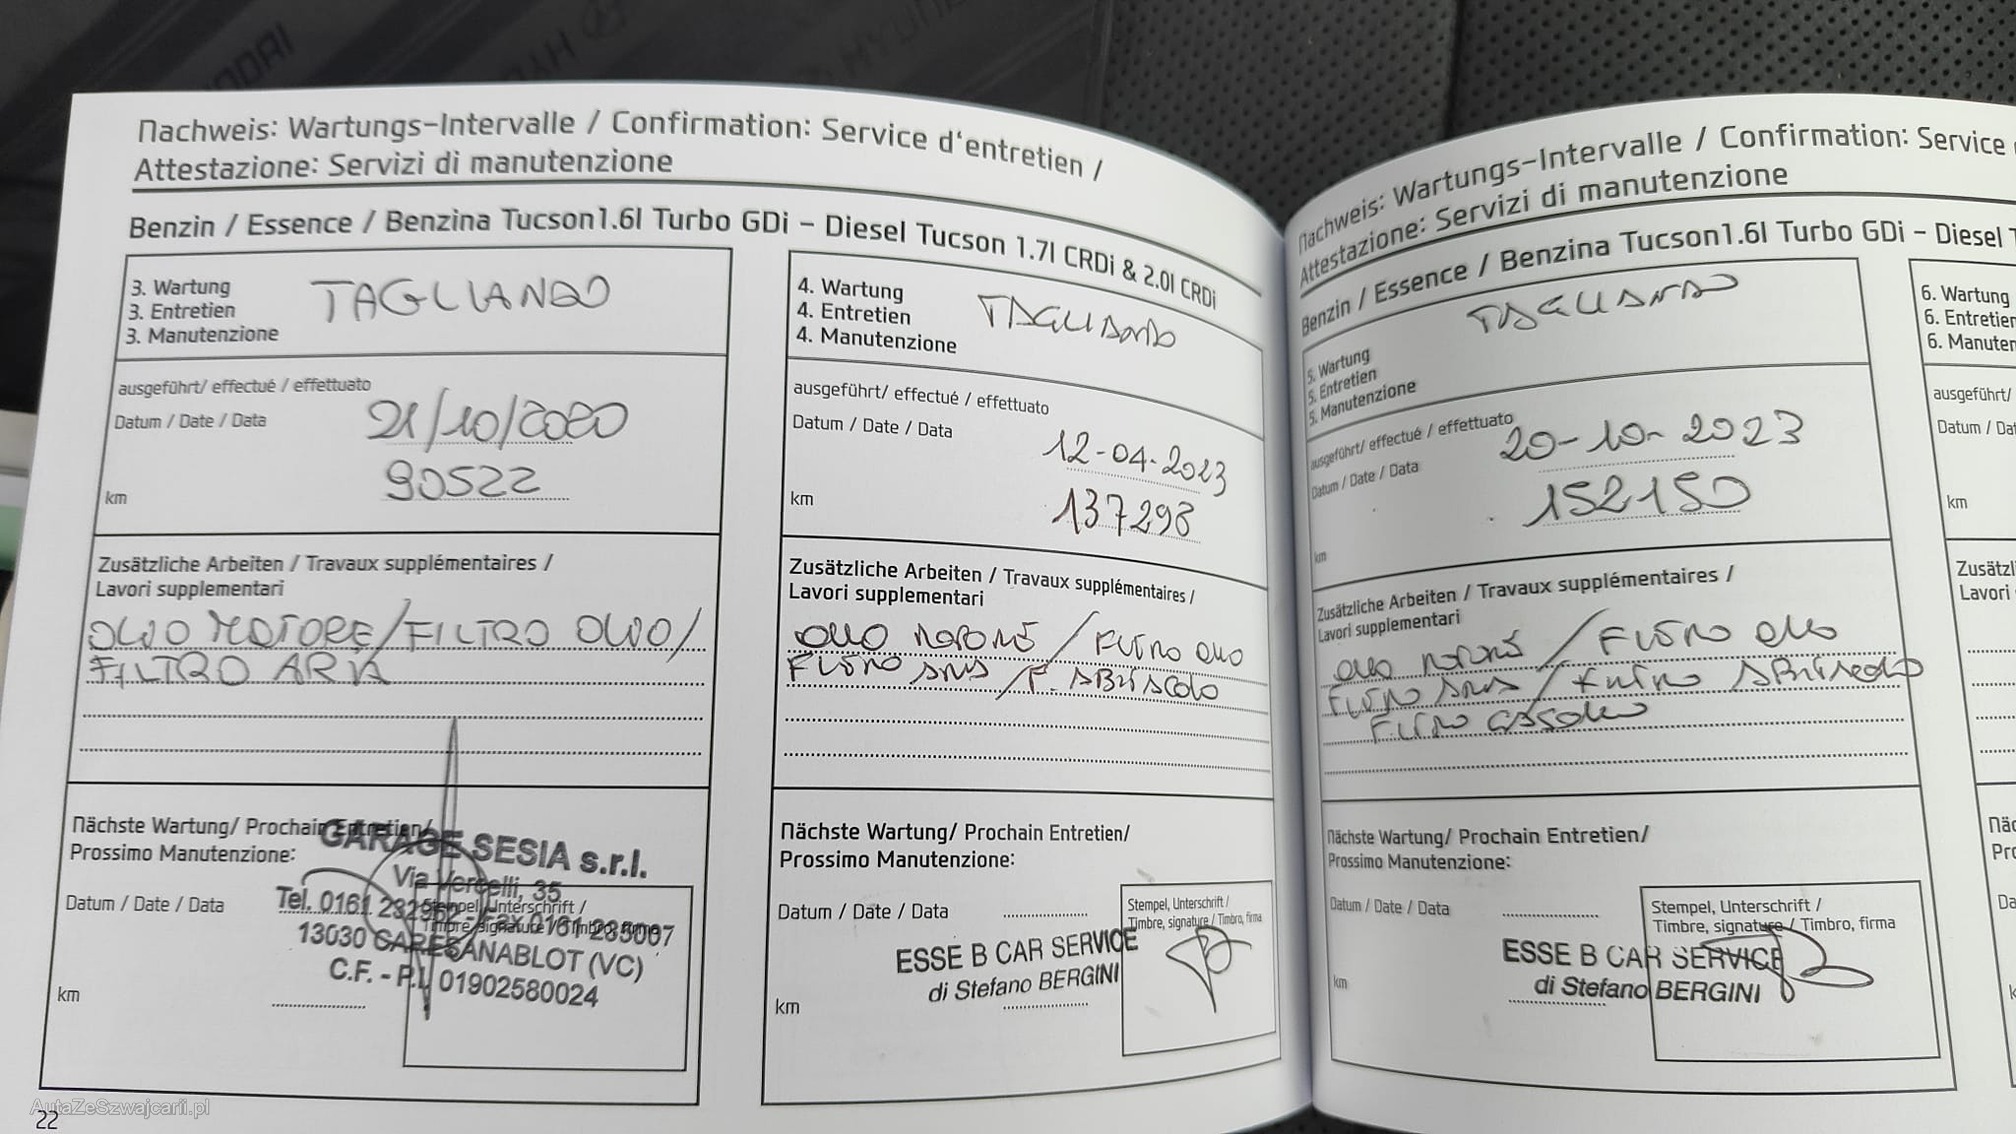 HYUNDAI
Nachweis: Wartungs-Intervalle / Confirmation: Service d'entretien /
Attestazione: Servizi di manutenzione
Benzin / Essence / Benzina Tucson1.6l Turbo GDi – Diesel Tucson 1.7l CRDi & 2.0l CRDi
3. Wartung
3. Entretien
3. Manutenzione
TAGLIANDO
ausgeführt/ effectué / effettuato
Datum / Date / Data
21/10/2020
km
90522
Zusätzliche Arbeiten / Travaux supplémentaires /
Lavori supplementari
OLIO MOTORE/FILTRO OLIO/
FILTRO ARIA
Nächste Wartung/ Prochain Entretien/
Prossimo Manutenzione:
Datum / Date / Data
km
Stempel, Unterschrift /
Timbre, signature / Timbro, firma
GARAGE SESIA s.r.l.
Via Vercelli, 35
Tel. 0161 232962 - Fax 0161 235007
13030 CARESANABLOT (VC)
C.F. - P.I. 01902580024
22
4. Wartung
4. Entretien
4. Manutenzione
TAGLIANDO
ausgeführt/ effectué / effettuato
Datum / Date / Data
12-04-2023
km
137298
Zusätzliche Arbeiten / Travaux supplémentaires /
Lavori supplementari
OLIO MOTORE / FILTRO OLIO
FILTRO ARIA / F. ABITACOLO
Nächste Wartung/ Prochain Entretien/
Prossimo Manutenzione:
Datum / Date / Data
km
Stempel, Unterschrift /
Timbre, signature / Timbro, firma
ESSE B CAR SERVICE
di Stefano BERGINI
Nachweis: Wartungs-Intervalle / Confirmation: Service
Attestazione: Servizi di manutenzione
Benzin / Essence / Benzina Tucson1.6l Turbo GDi – Diesel
5. Wartung
5. Entretien
5. Manutenzione
TAGLIANDO
ausgeführt/ effectué / effettuato
Datum / Date / Data
20-10-2023
km
152150
Zusätzliche Arbeiten / Travaux supplémentaires /
Lavori supplementari
OLIO MOTORE / FILTRO OLIO
FILTRO ARIA / FILTRO ABITACOLO
FILTRO GASOLIO
Nächste Wartung/ Prochain Entretien/
Prossimo Manutenzione:
Datum / Date / Data
km
Stempel, Unterschrift /
Timbre, signature / Timbro, firma
ESSE B CAR SERVICE
di Stefano BERGINI
6. Wartung
6. Entretien
6. Manuten
ausgeführt/
Datum / Dat
km
Zusätzl
Lavori
AutaZeSzwajcarii.pl